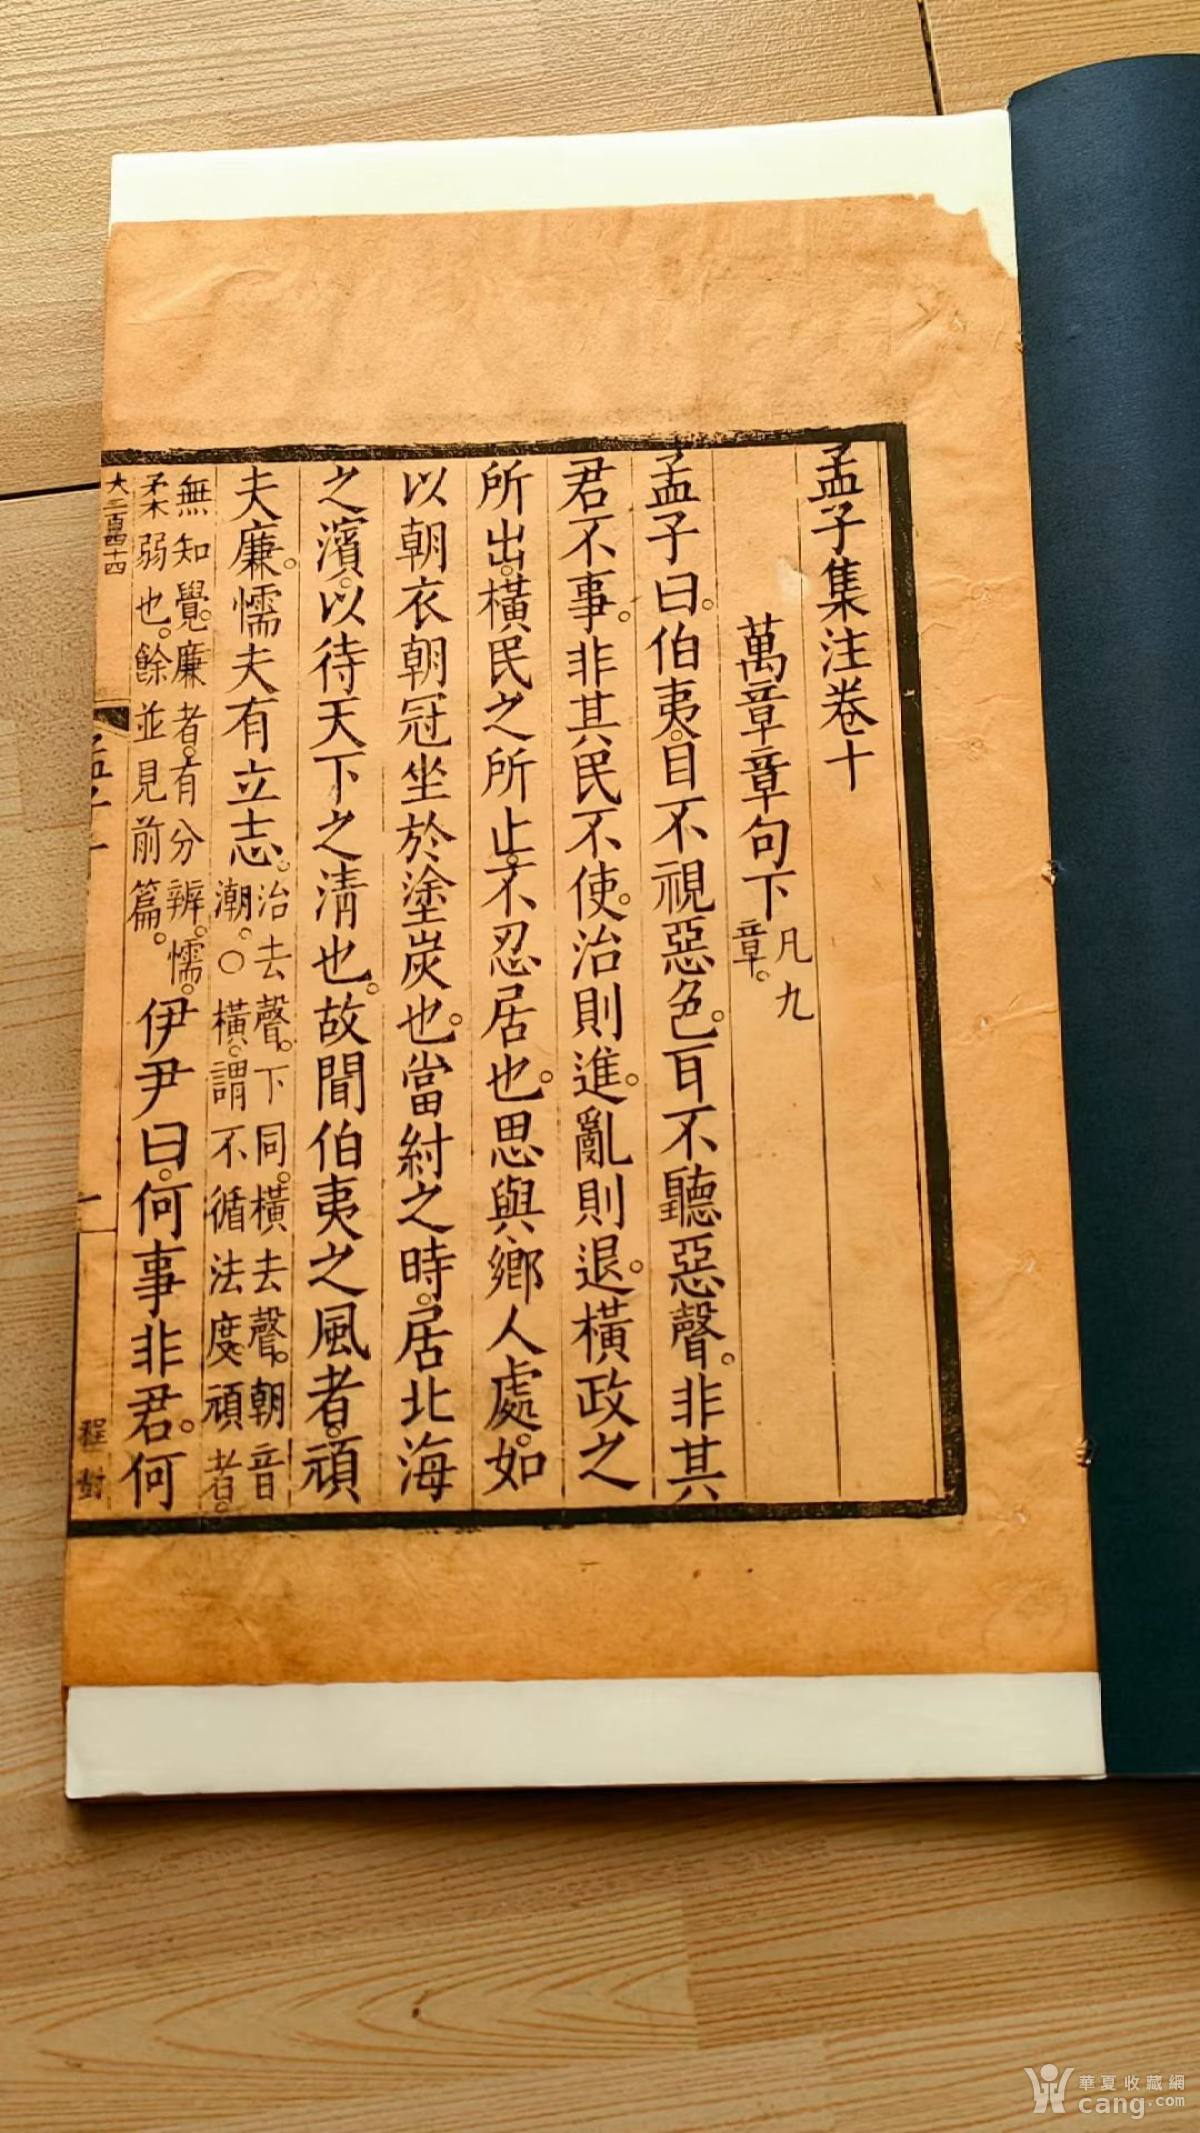 孟子集注卷十
萬章章句下凡九
章。
孟子曰。伯夷。目不視惡色。耳不聽惡聲。非其
君不事。非其民不使。治則進。亂則退。橫政之
所出。橫民之所止。不忍居也。思與鄉人處。如
以朝衣朝冠坐於塗炭也。當紂之時。居北海
之濱。以待天下之清也。故聞伯夷之風者。頑
夫廉。懦夫有立志。治去聲。下同。橫去聲。朝音
潮。○橫。謂不循法度。頑者。
無知覺。廉者。有分辨。懦。
柔弱也。餘並見前篇。伊尹曰。何事非君。何
大三百四十四
孟子
程
華夏收藏網
cang.com